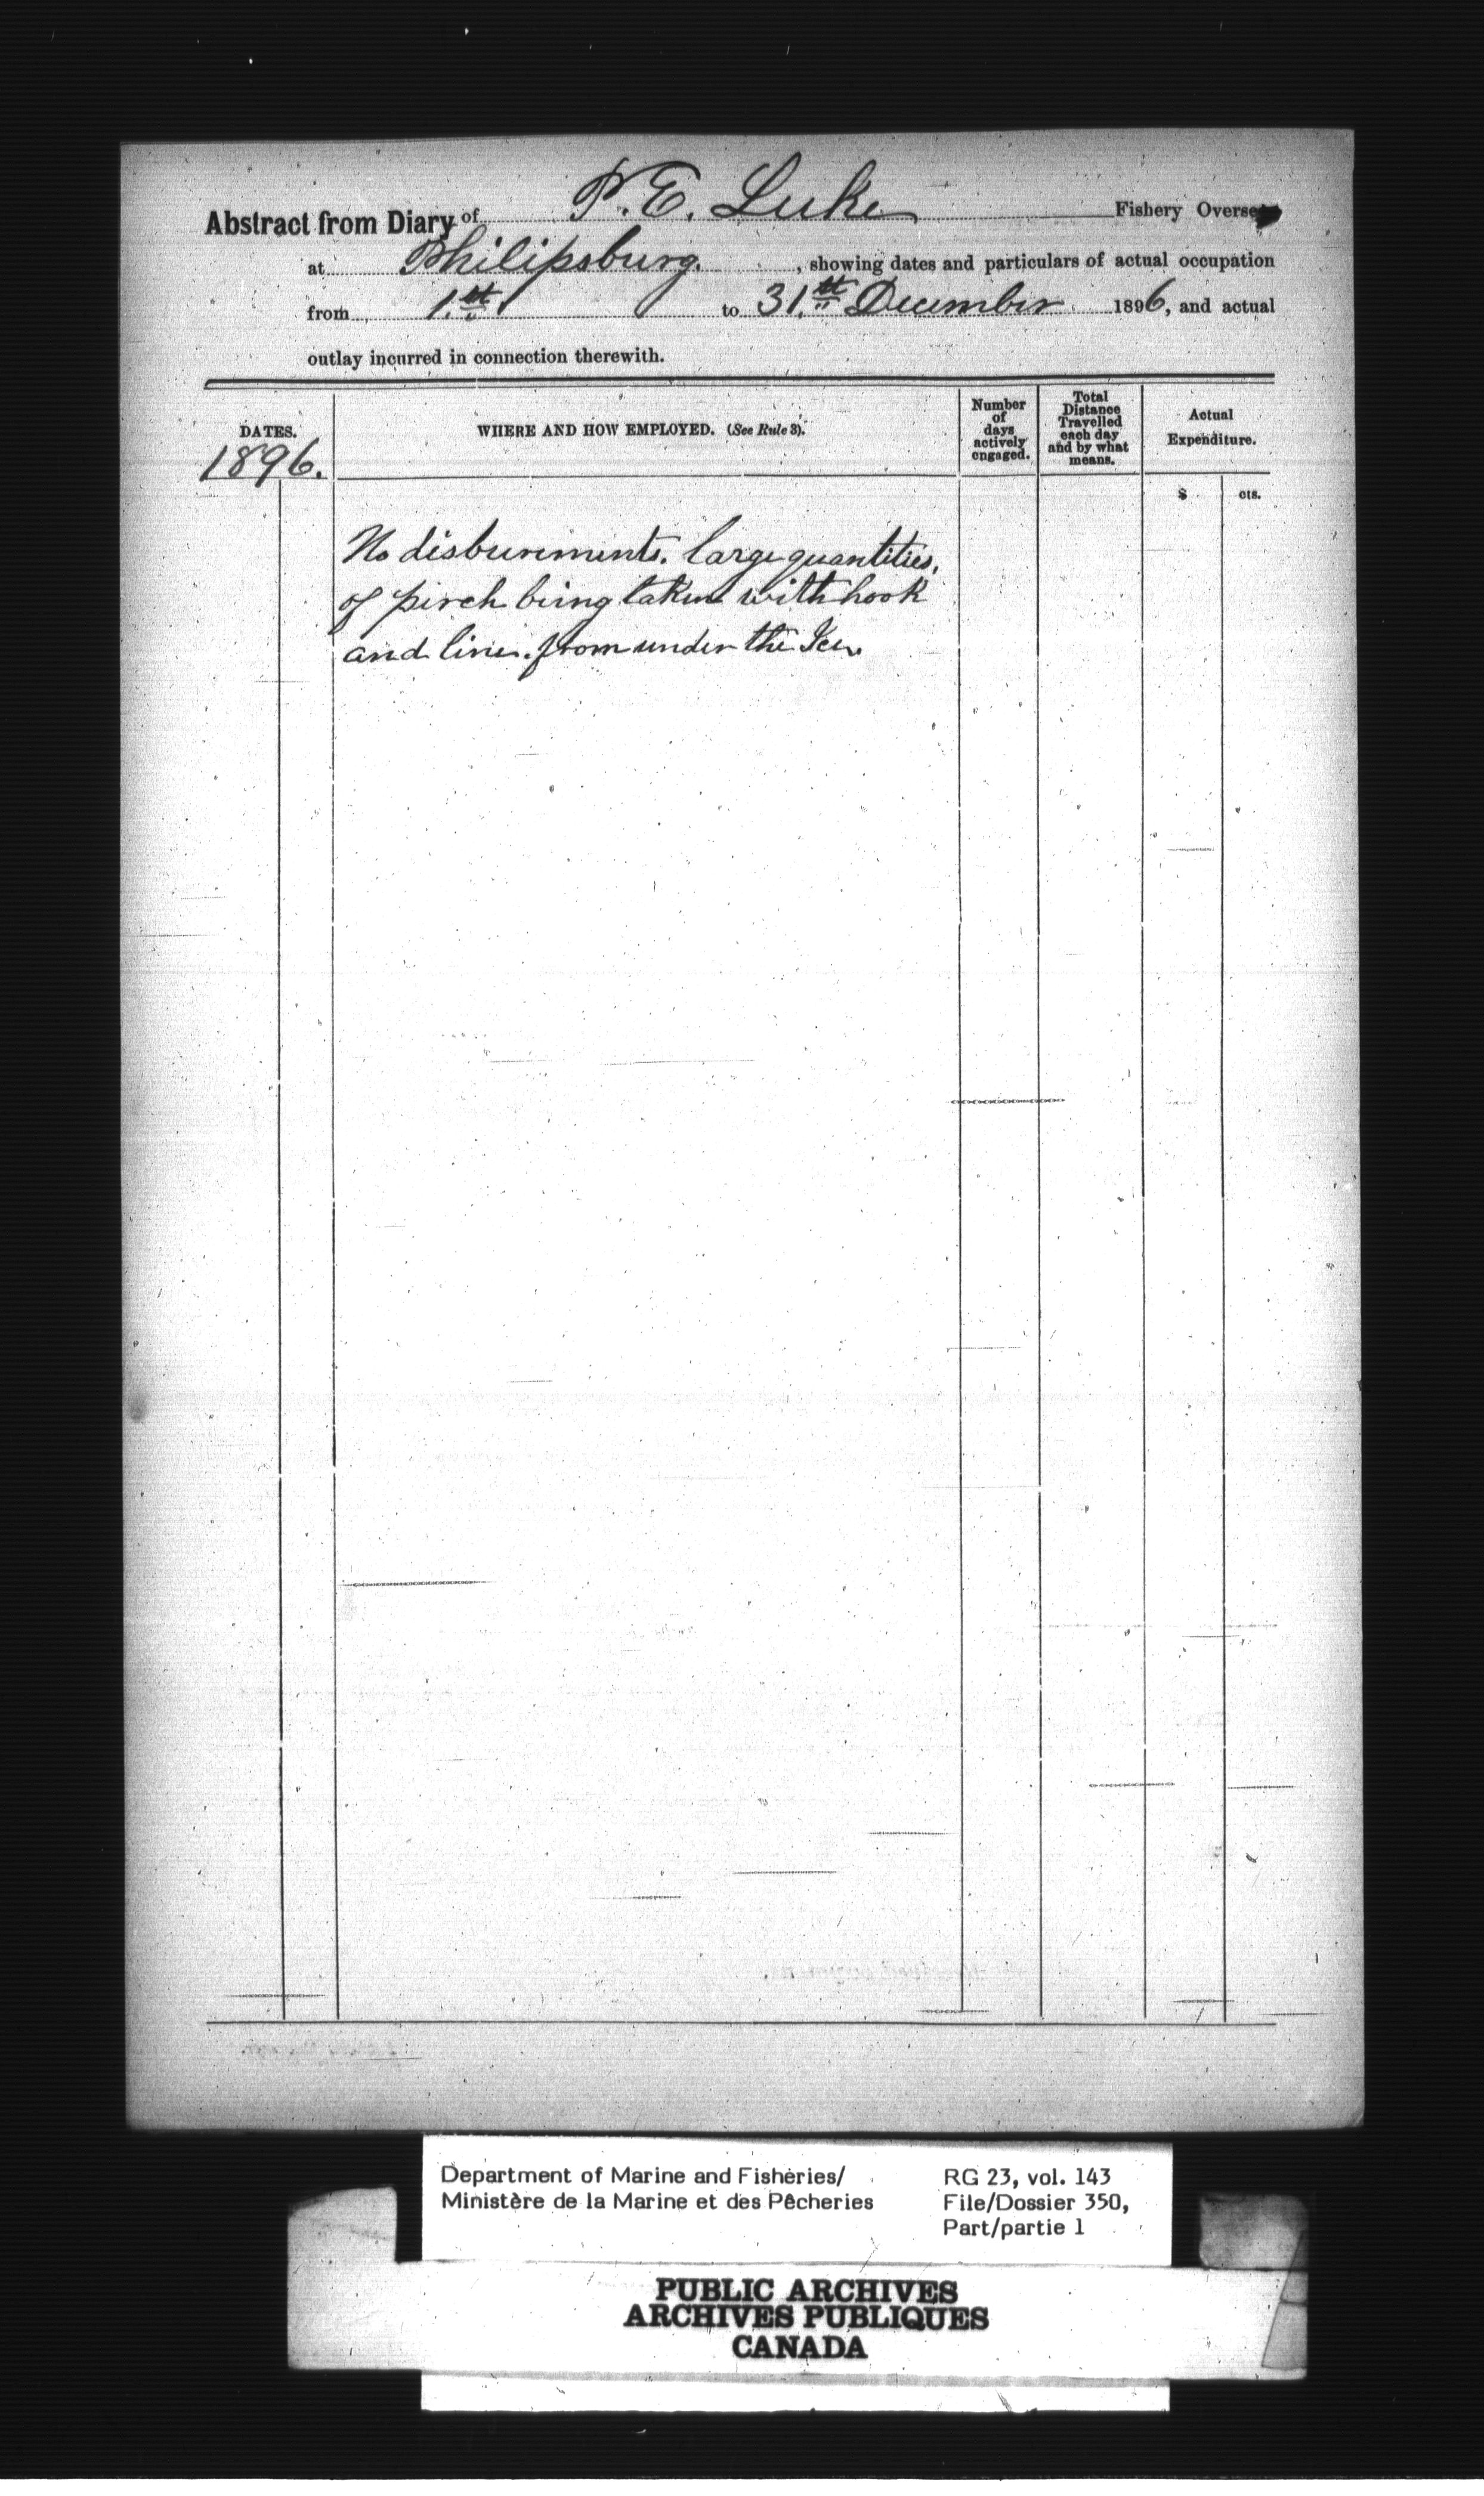 Abstract from Diary of P. E. Luke Fishery Overseer
at Philipsburg. , showing dates and particulars of actual occupation
from 1.st to 31.st December 1896, and actual
outlay incurred in connection therewith.
DATES.
1896.
WHERE AND HOW EMPLOYED. (See Rule 3).
Number
of
days
actively
engaged.
Total
Distance
Travelled
each day
and by what
means.
Actual
Expenditure.
$ cts.
No disbursments. large quantities,
of perch being taken with hook
and line. from under the Ice.
Department of Marine and Fisheries/
Ministère de la Marine et des Pêcheries
RG 23, vol. 143
File/Dossier 350,
Part/partie 1
PUBLIC ARCHIVES
ARCHIVES PUBLIQUES
CANADA